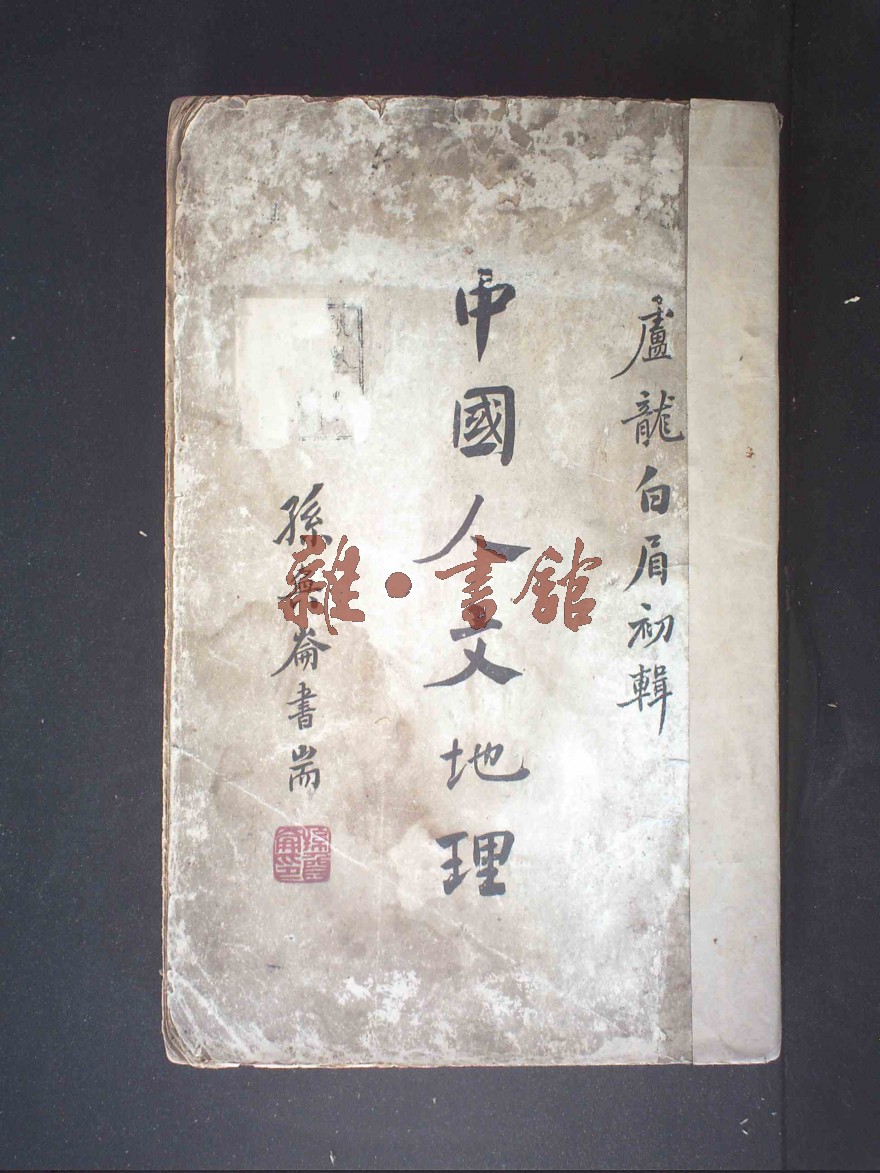 盧龍白眉初輯
中國人文地理
孫奐崙書耑
雜·書館